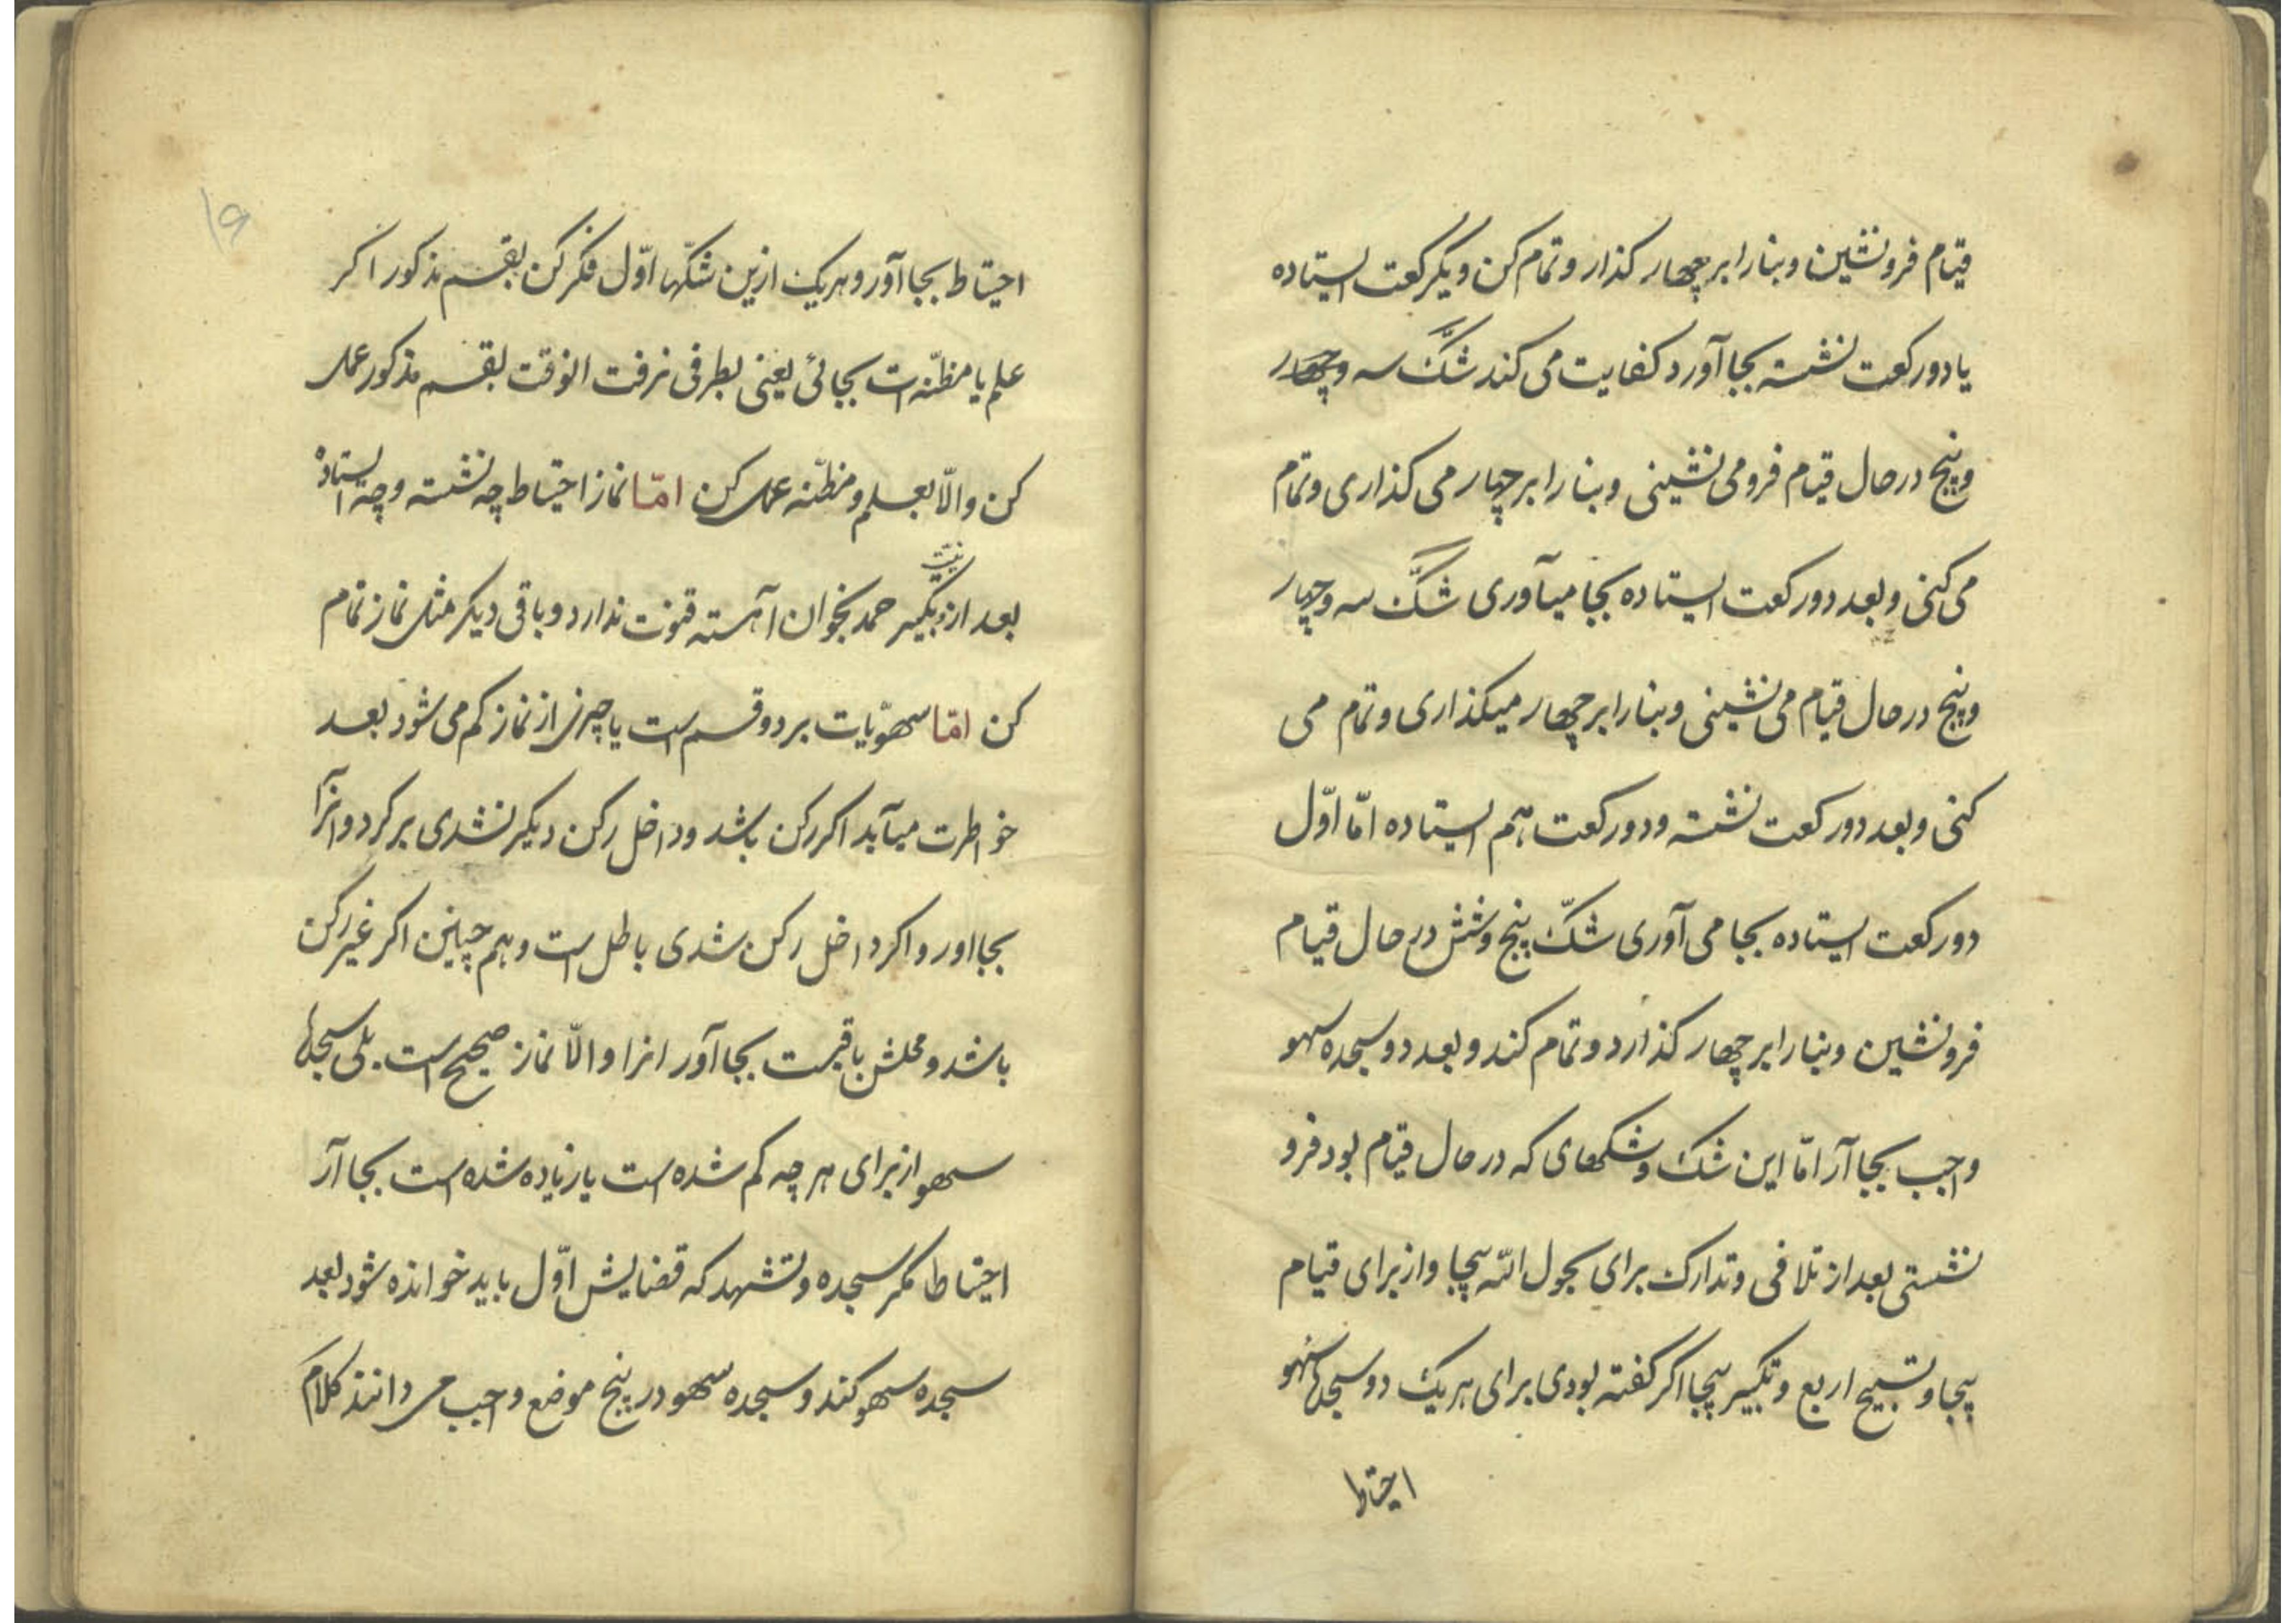 قیام فرونشین وبنارا بر چهار کذار وتمام کن ویکرکعت ایستاده
یا دورکعت نشسته بجا آورد کفایت می کند شکّ سه وچهار
وپنج درحال قیام فرومی نشینی وبنارا بر چهار می کذاری وتمام
می کنی وبعد دورکعت ایستاده بجا میآوری شکّ سه وچهار
وپنج درحال قیام می نشینی وبنارا بر چهار میکذاری وتمام می
کنی وبعد دورکعت نشسته ودورکعت هم ایستاده امّا اوّل
دورکعت ایستاده بجا می آوری شکّ پنج وشش در حال قیام
فرونشین وبنارا بر چهار کذارد وتمام کند وبعد دو سجده سهو
واجب بجا آر امّا این شک وشکهای که درحال قیام بود فرو
نشستی بعد از تلافی وتدارک برای بحول الله بیجا واز برای قیام
بیجا وتسبیح اربع وتکبیر بیجا اکر کفته بودی برای هریک دوسجده سهو
احتیاط
۱۶
احتیاط بجا آور وهریک ازین شکّها اوّل فکر کن بقسم مذکور اکر
علم یا مظنّه ات بجائی یعنی بطرفی نرفت انوقت بقسم مذکور عمل
کن والّا بعلم ومظنّه عمل کن امّا نماز احتیاط چه نشسته وچه ایستاده
نیّت
بعد از تکبیر حمد بخوان آهسته قنوت ندارد وباقی دیکر مثل نماز تمام
کن امّا سهویّات بر دوقسم است یا چیزی از نماز کم می شود بعد
خواطرت میآید اکر رکن باشد وداخل رکن دیکر نشدی برکرد وانرا
بجا اور واکر داخل رکن شدی باطل است وهم چنین اکر غیر رکن
باشد ومحلش باقیست بجا آور انرا والّا نماز صحیح است. بلی سجده
سهو از برای هر چه کم شده است یا زیاده شده است بجا آر
احتیاطا مکر سجده وتشهد که قضایش اوّل باید خوانده شود بعد
سجده سهو کند وسجده سهو در پنج موضع واجب می دانند کلام